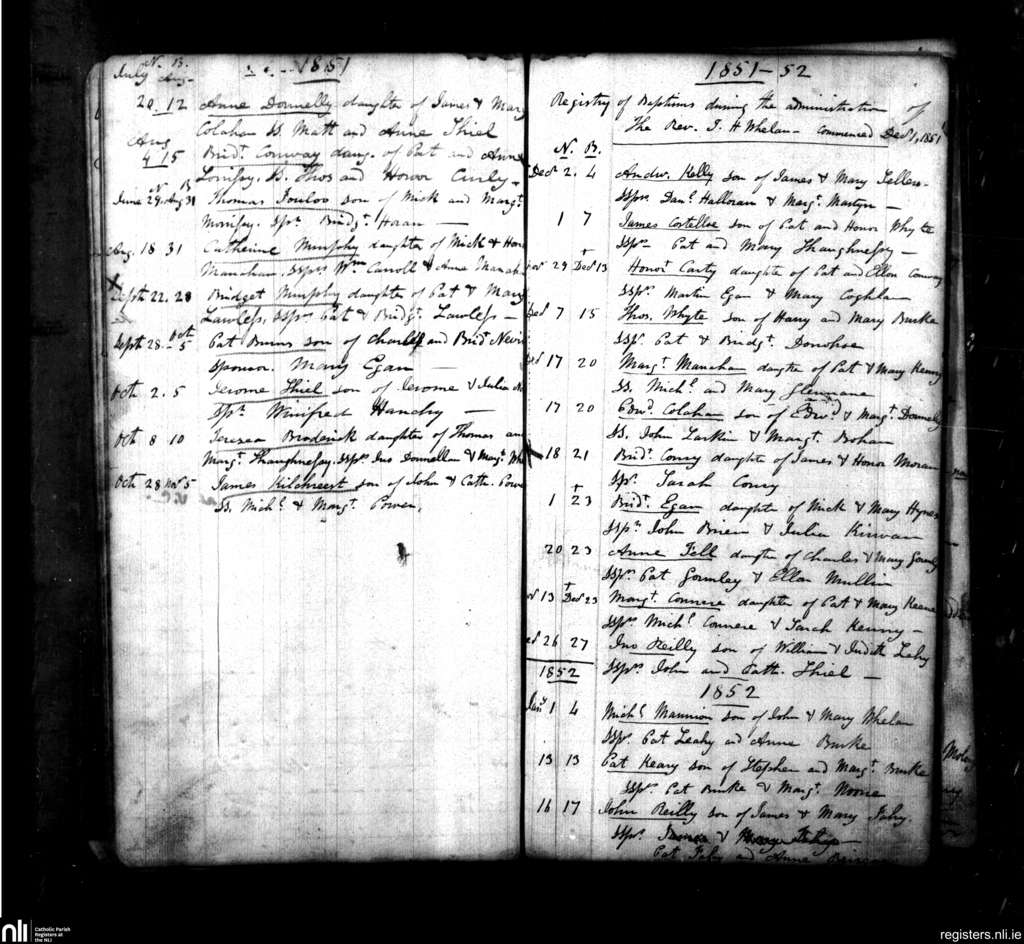 1851
N. B.
July Aug.
20 12 Anne Donnelly daughter of James & Mary
Colahan SS. Matt and Anne Shiel
Aug
4 15 Bridt. Conway daug. of Pat and Anne
SS. Thos and Honor Curly
N B
June 29 Aug 31 Thomas son of Mick and Margt.
Morrissy. Spr. Bridgt. Horan —
Aug. 18 31 Catherine Murphy daughter of Mick & Hon
Manahan, SSprs Wm. Carroll & Anne Manah
Septr 22. 28 Bridget Murphy daughter of Pat & Mary
Lawless, SSprs Pat & Bridgt. Lawless —
Septr 28. Oct 5 Pat Burns son of Charles and Brid.
Sponsor. Mary Egan —
Oct 2. 5 Jerome Shiel son of Jerome & Julia
Spr. Winifred Handry —
Oct 8 10 Teresea Broderick daughter of Thomas an
Margt. Shaughnessy. SSprs Jno Donnellan & Margt. Wh
Oct 28 Novr 5 James Kilchreest son of John & Cath. Powe
SS. Michl. & Margt. Power.
1851–52
Registry of Baptisms during the administration of
The Rev. J. H Whelan commenced Decr 1, 1851
N. B.
Decr 2. 4 Andw. Kelly son of James & Mary
SSprs. Danl. Halloran & Margt. Martyn —
1 7 James Costelloe son of Pat and Honor Whyte
SSprs Pat and Mary Shaughnessy —
29 + Decr 13 Honor Carty daughter of Pat and Ellen Conway
SSprs. Martin Egan & Mary Coghlan
7 15 Thos. Whyte son of Harry and Mary Burke
SSpr. Pat & Bridgt. Donohoe
17 20 Margt. Manahan daughter of Pat & Mary Kenny
SS. Michl. and Mary Glennane
17 20 Edwd. Colahan son of Edwd. & Margt. Donnelly
SS. John Larkin & Margt. Bohan
18 21 Bridt. Conry daughter of James & Honor Moran
Spr. Sarah Conry
+
1 23 Bridt. Egan daughter of Mick & Mary Hynes
SSprs John Brien & Julia Kirwan
20 23 Anne Fell daughter of Charles & Mary Gormly
SSprs. Pat Gormley & Ellen Mullin
13 + Decr 23 Margt. Connere daughter of Pat & Mary Keane
SSprs Michl. Connere & Sarah Kenny —
26 27 Jno Reilly son of William & Judith Leahy
1852 SSprs. John and Cath. Shiel —
1852
Jany 1 4 Michl. Mannion son of John & Mary Whelan
SSpr. Pat Leahy and Anne Burke
13 13 Pat Keary son of Stephen and Margt. Burke
SSprs. Pat Burke & Margt. Moore
16 17 John Reilly son of James & Mary Fahy.
SSpr. James & Mary Fahy
Pat Fahy and Anne
nli
Catholic Parish
Registers at
the NLI
registers.nli.ie